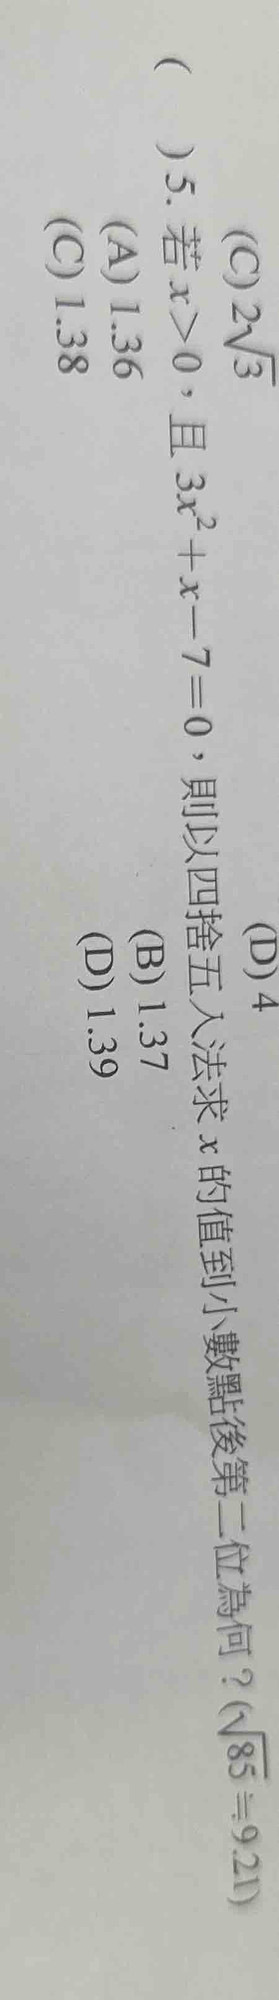 (C) 2√3 (D) 4
( ) 5. 若 x＞0，且 3x²＋x－7＝0，則以四捨五入法求 x 的值到小數點後第二位為何？(√85≒9.21)
(A) 1.36 (B) 1.37
(C) 1.38 (D) 1.39